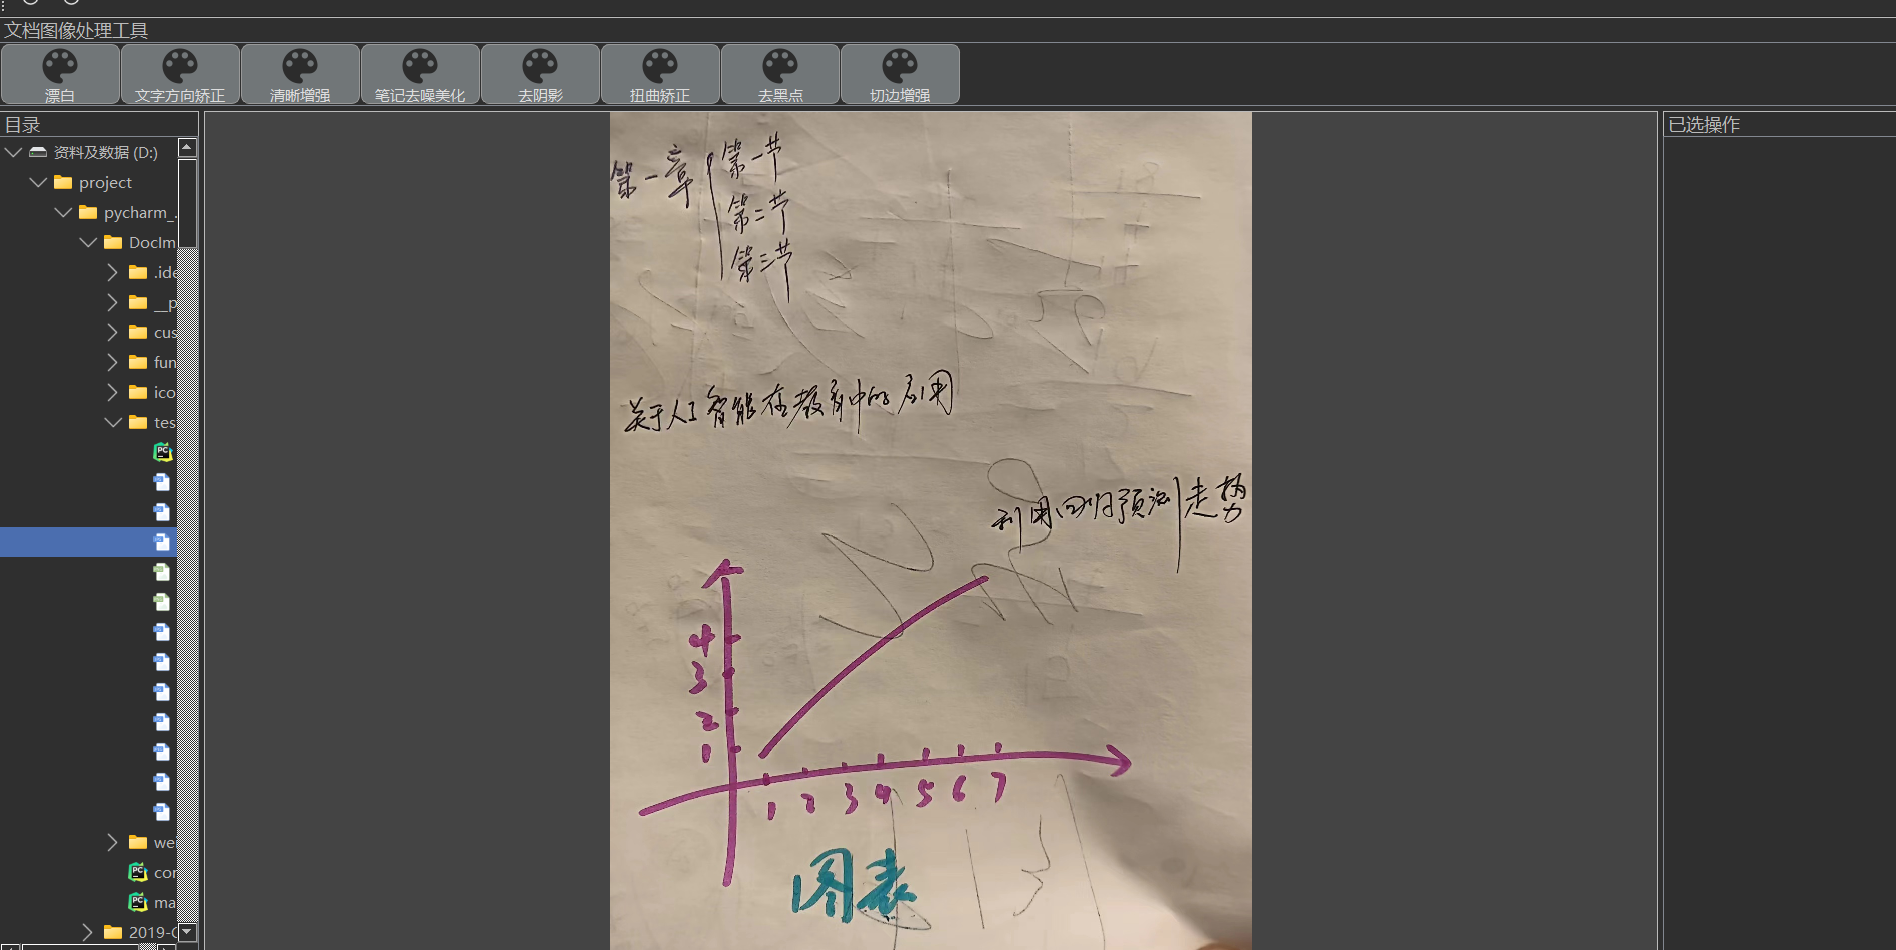 文档图像处理工具
漂白
文字方向矫正
清晰增强
笔记去噪美化
去阴影
扭曲矫正
去黑点
切边增强
目录
资料及数据 (D:)
project
pycharm_
DocIm
.ide
__p
cus
fun
ico
tes
we
con
ma
2019-C
第一章
第一节
第二节
第三节
关于人工智能在教育中的应用
利用回归预测走势
4
3
2
1
1 2 3 4 5 6 7
图表
已选操作